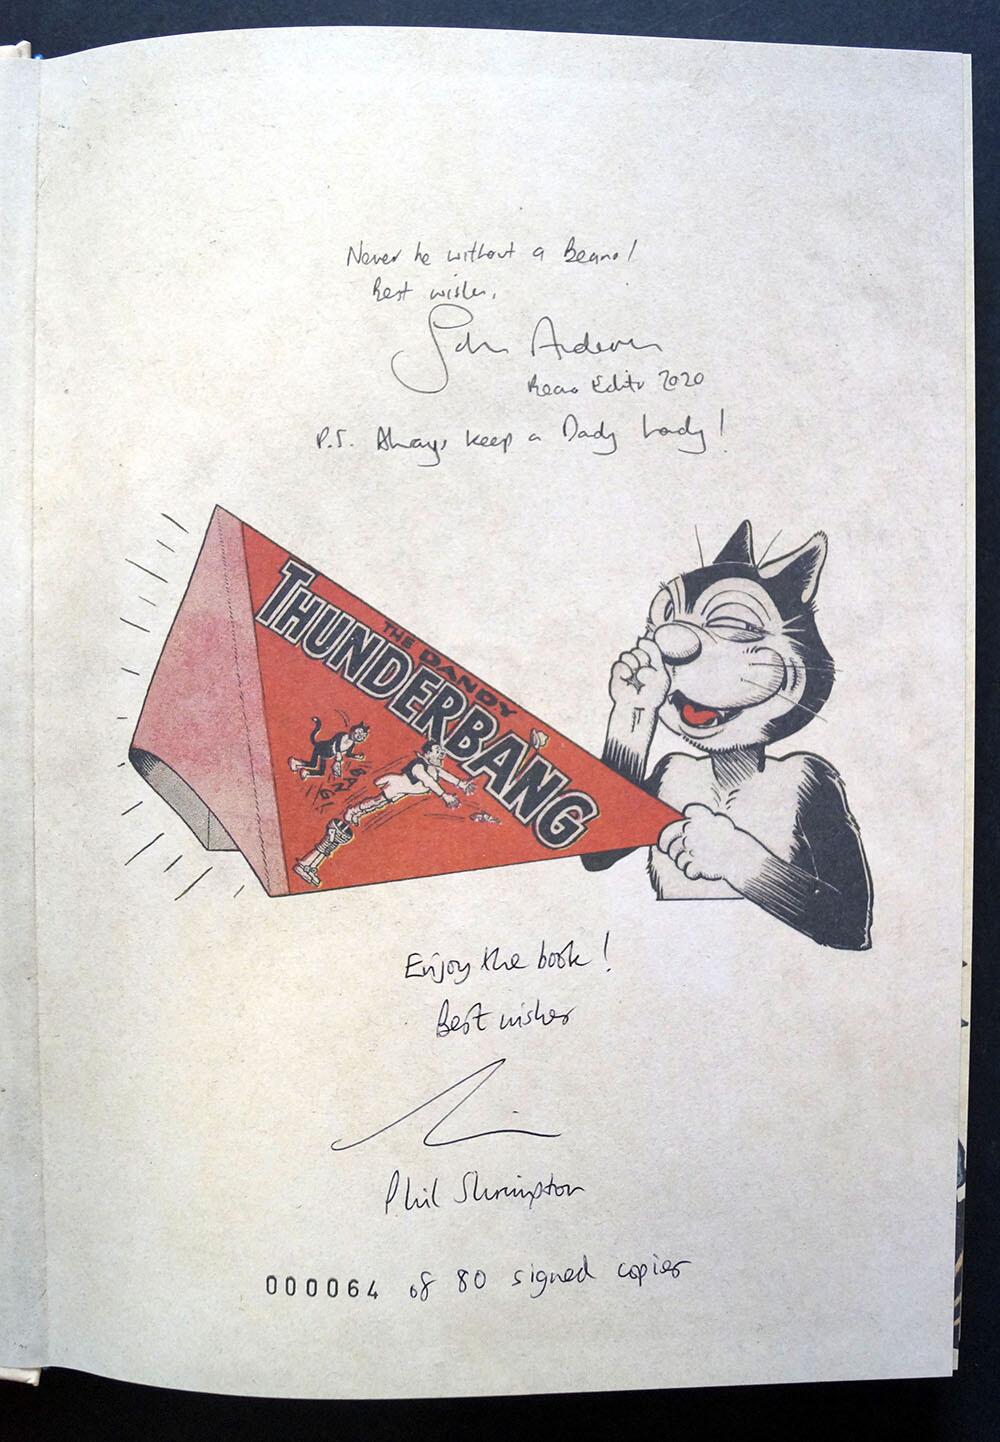 Never be without a Beano!
Best wishes,
John Anderson
Beano Editor 2020
P.S. Always keep a Dandy handy!
THE DANDY
THUNDERBANG
GNAG
Enjoy the book!
Best wishes
Phil Shrimpton
000064 of 80 signed copies